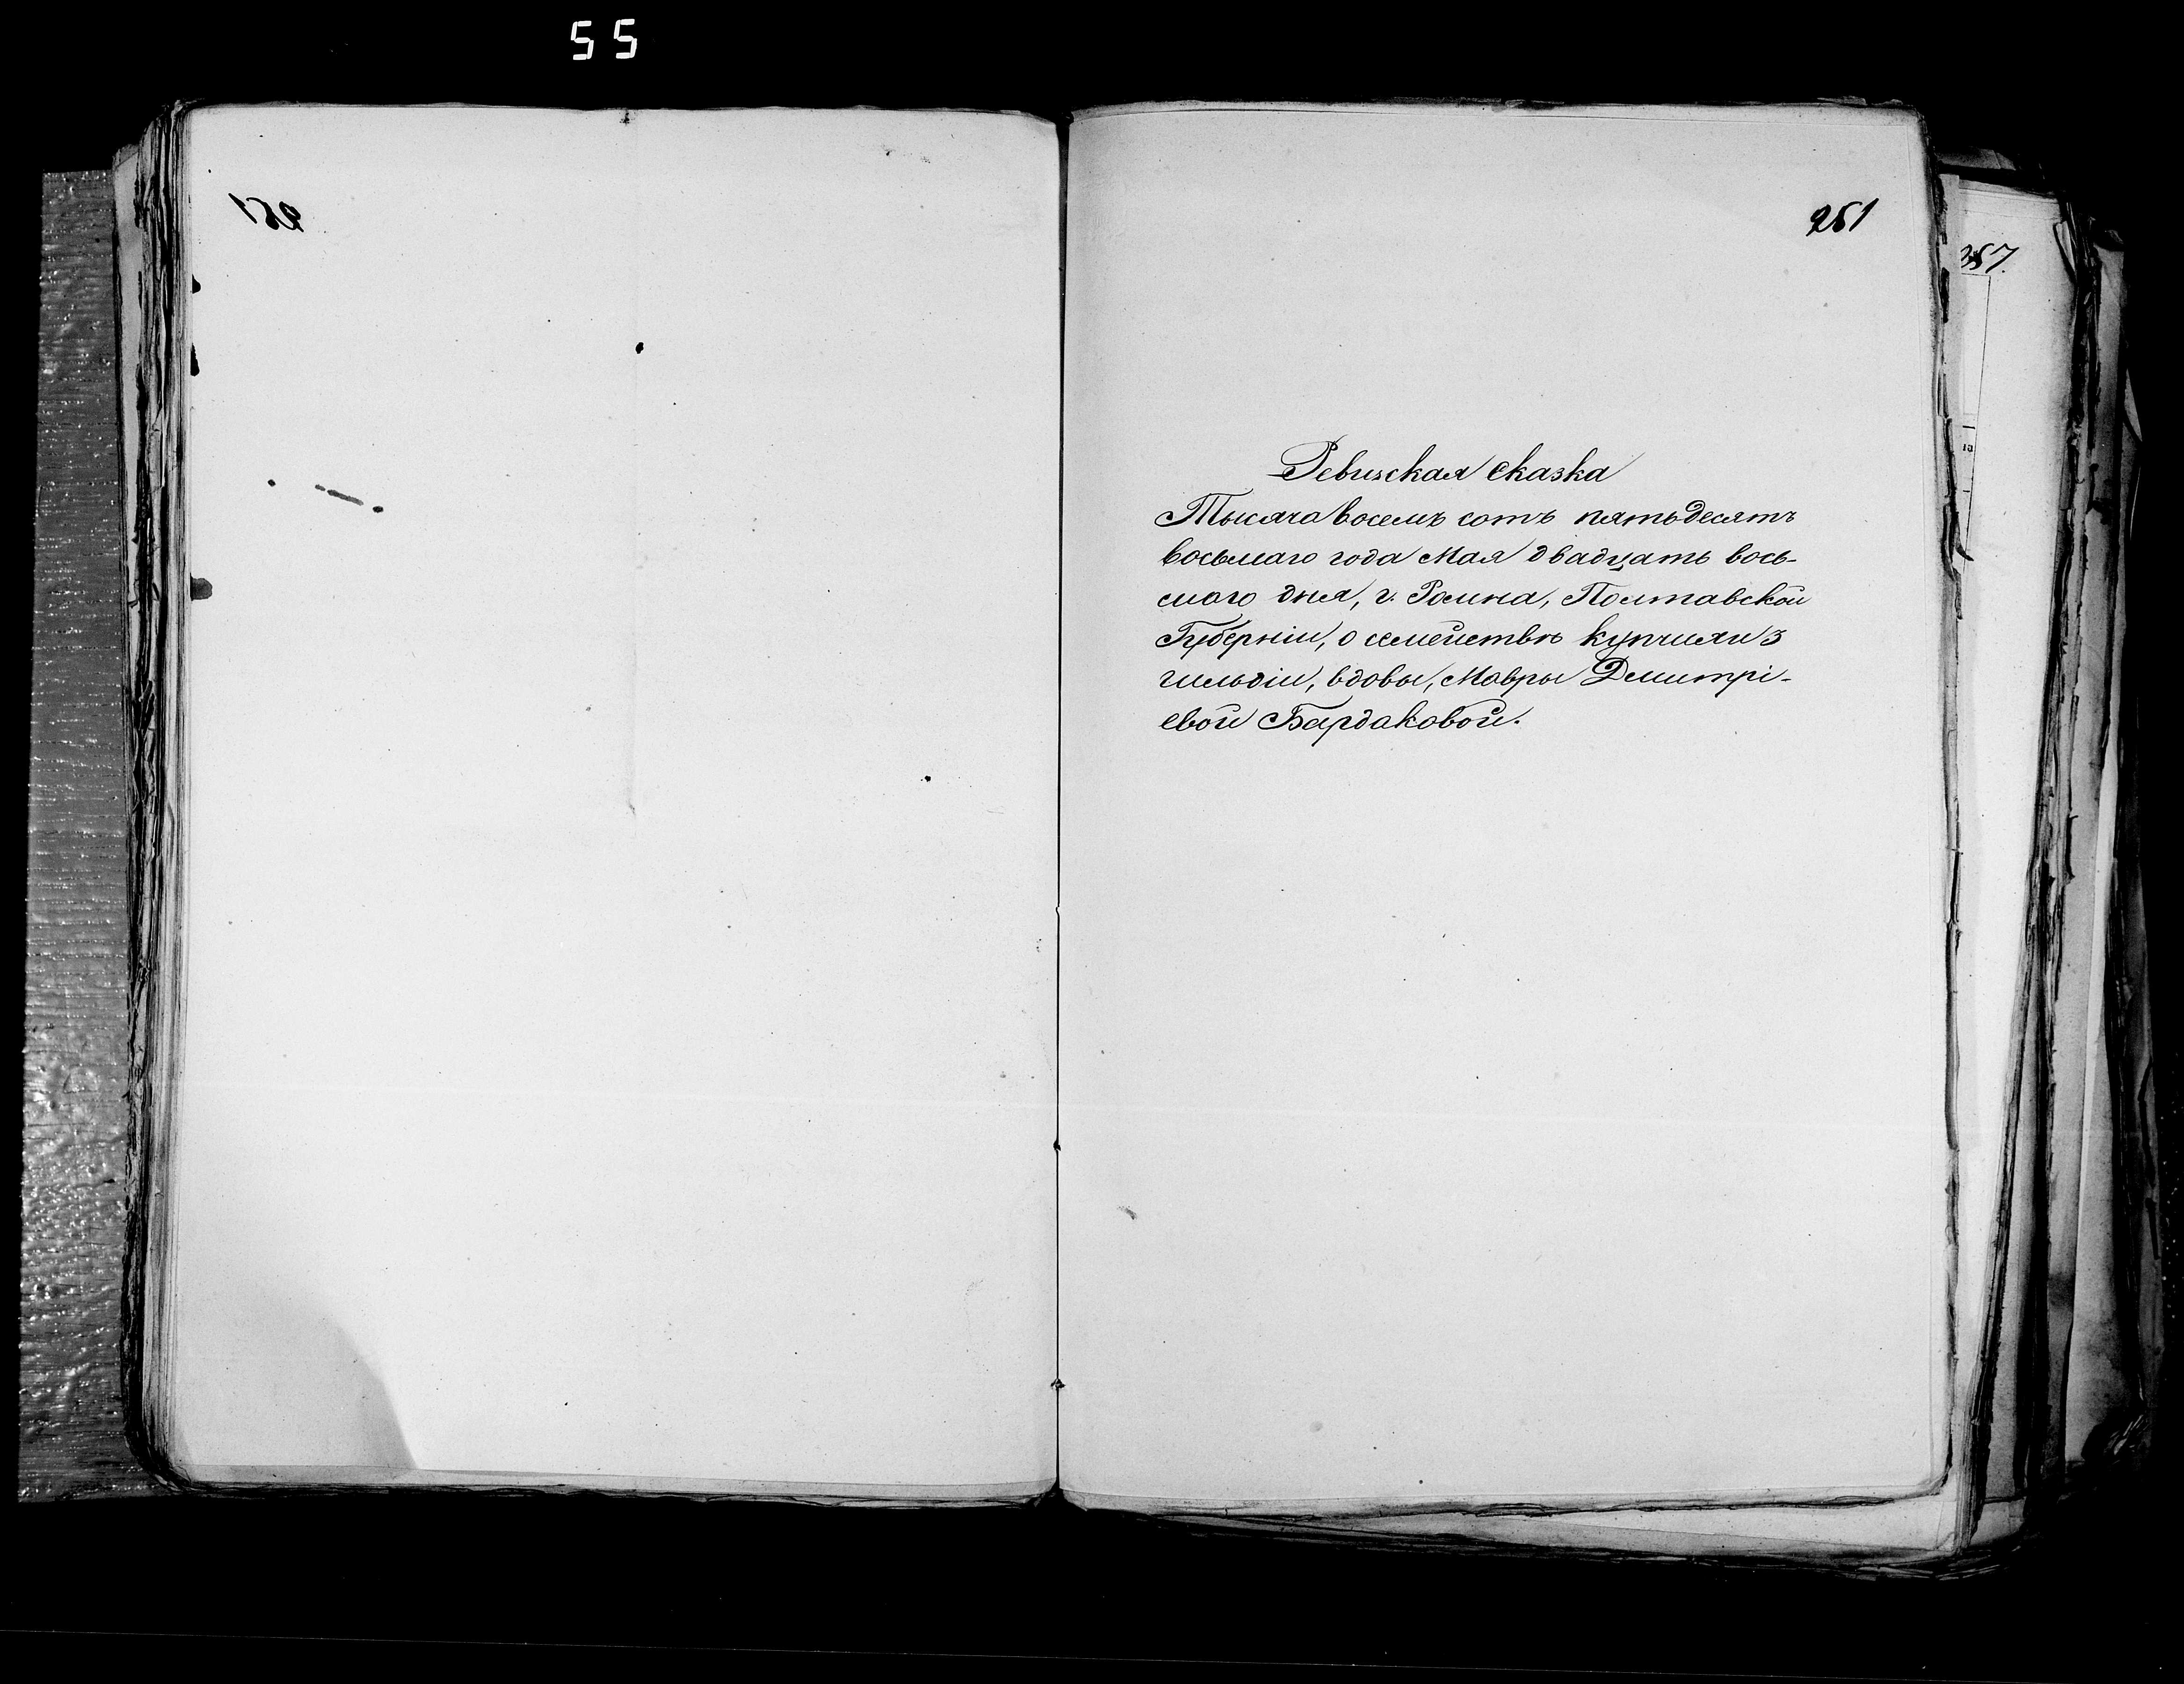 55
251
357.
Ревизская сказка
Тысяча восемь сотъ пятьдесятъ
восьмаго года Мая двадцать вось-
маго дня, г. Ромна, Полтавской
Губерніи, о семействѣ купчихи 3
гильдіи, вдовы, Мавры Дмитрі-
евой Бардаковой.